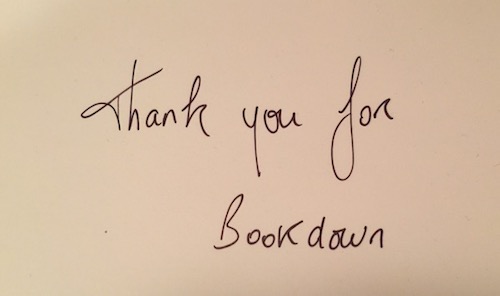 Thank you for
Bookdown